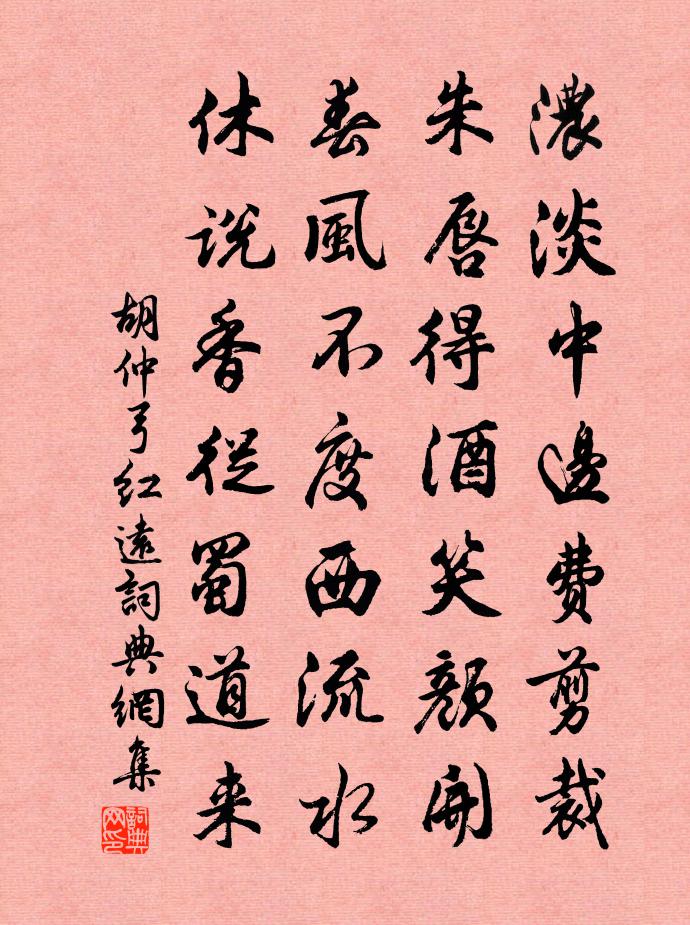 濃淡中邊費剪裁
朱唇得酒笑顏開
春風不度西流水
休説香從蜀道来
胡仲弓红遠詞典網集
詞典网印